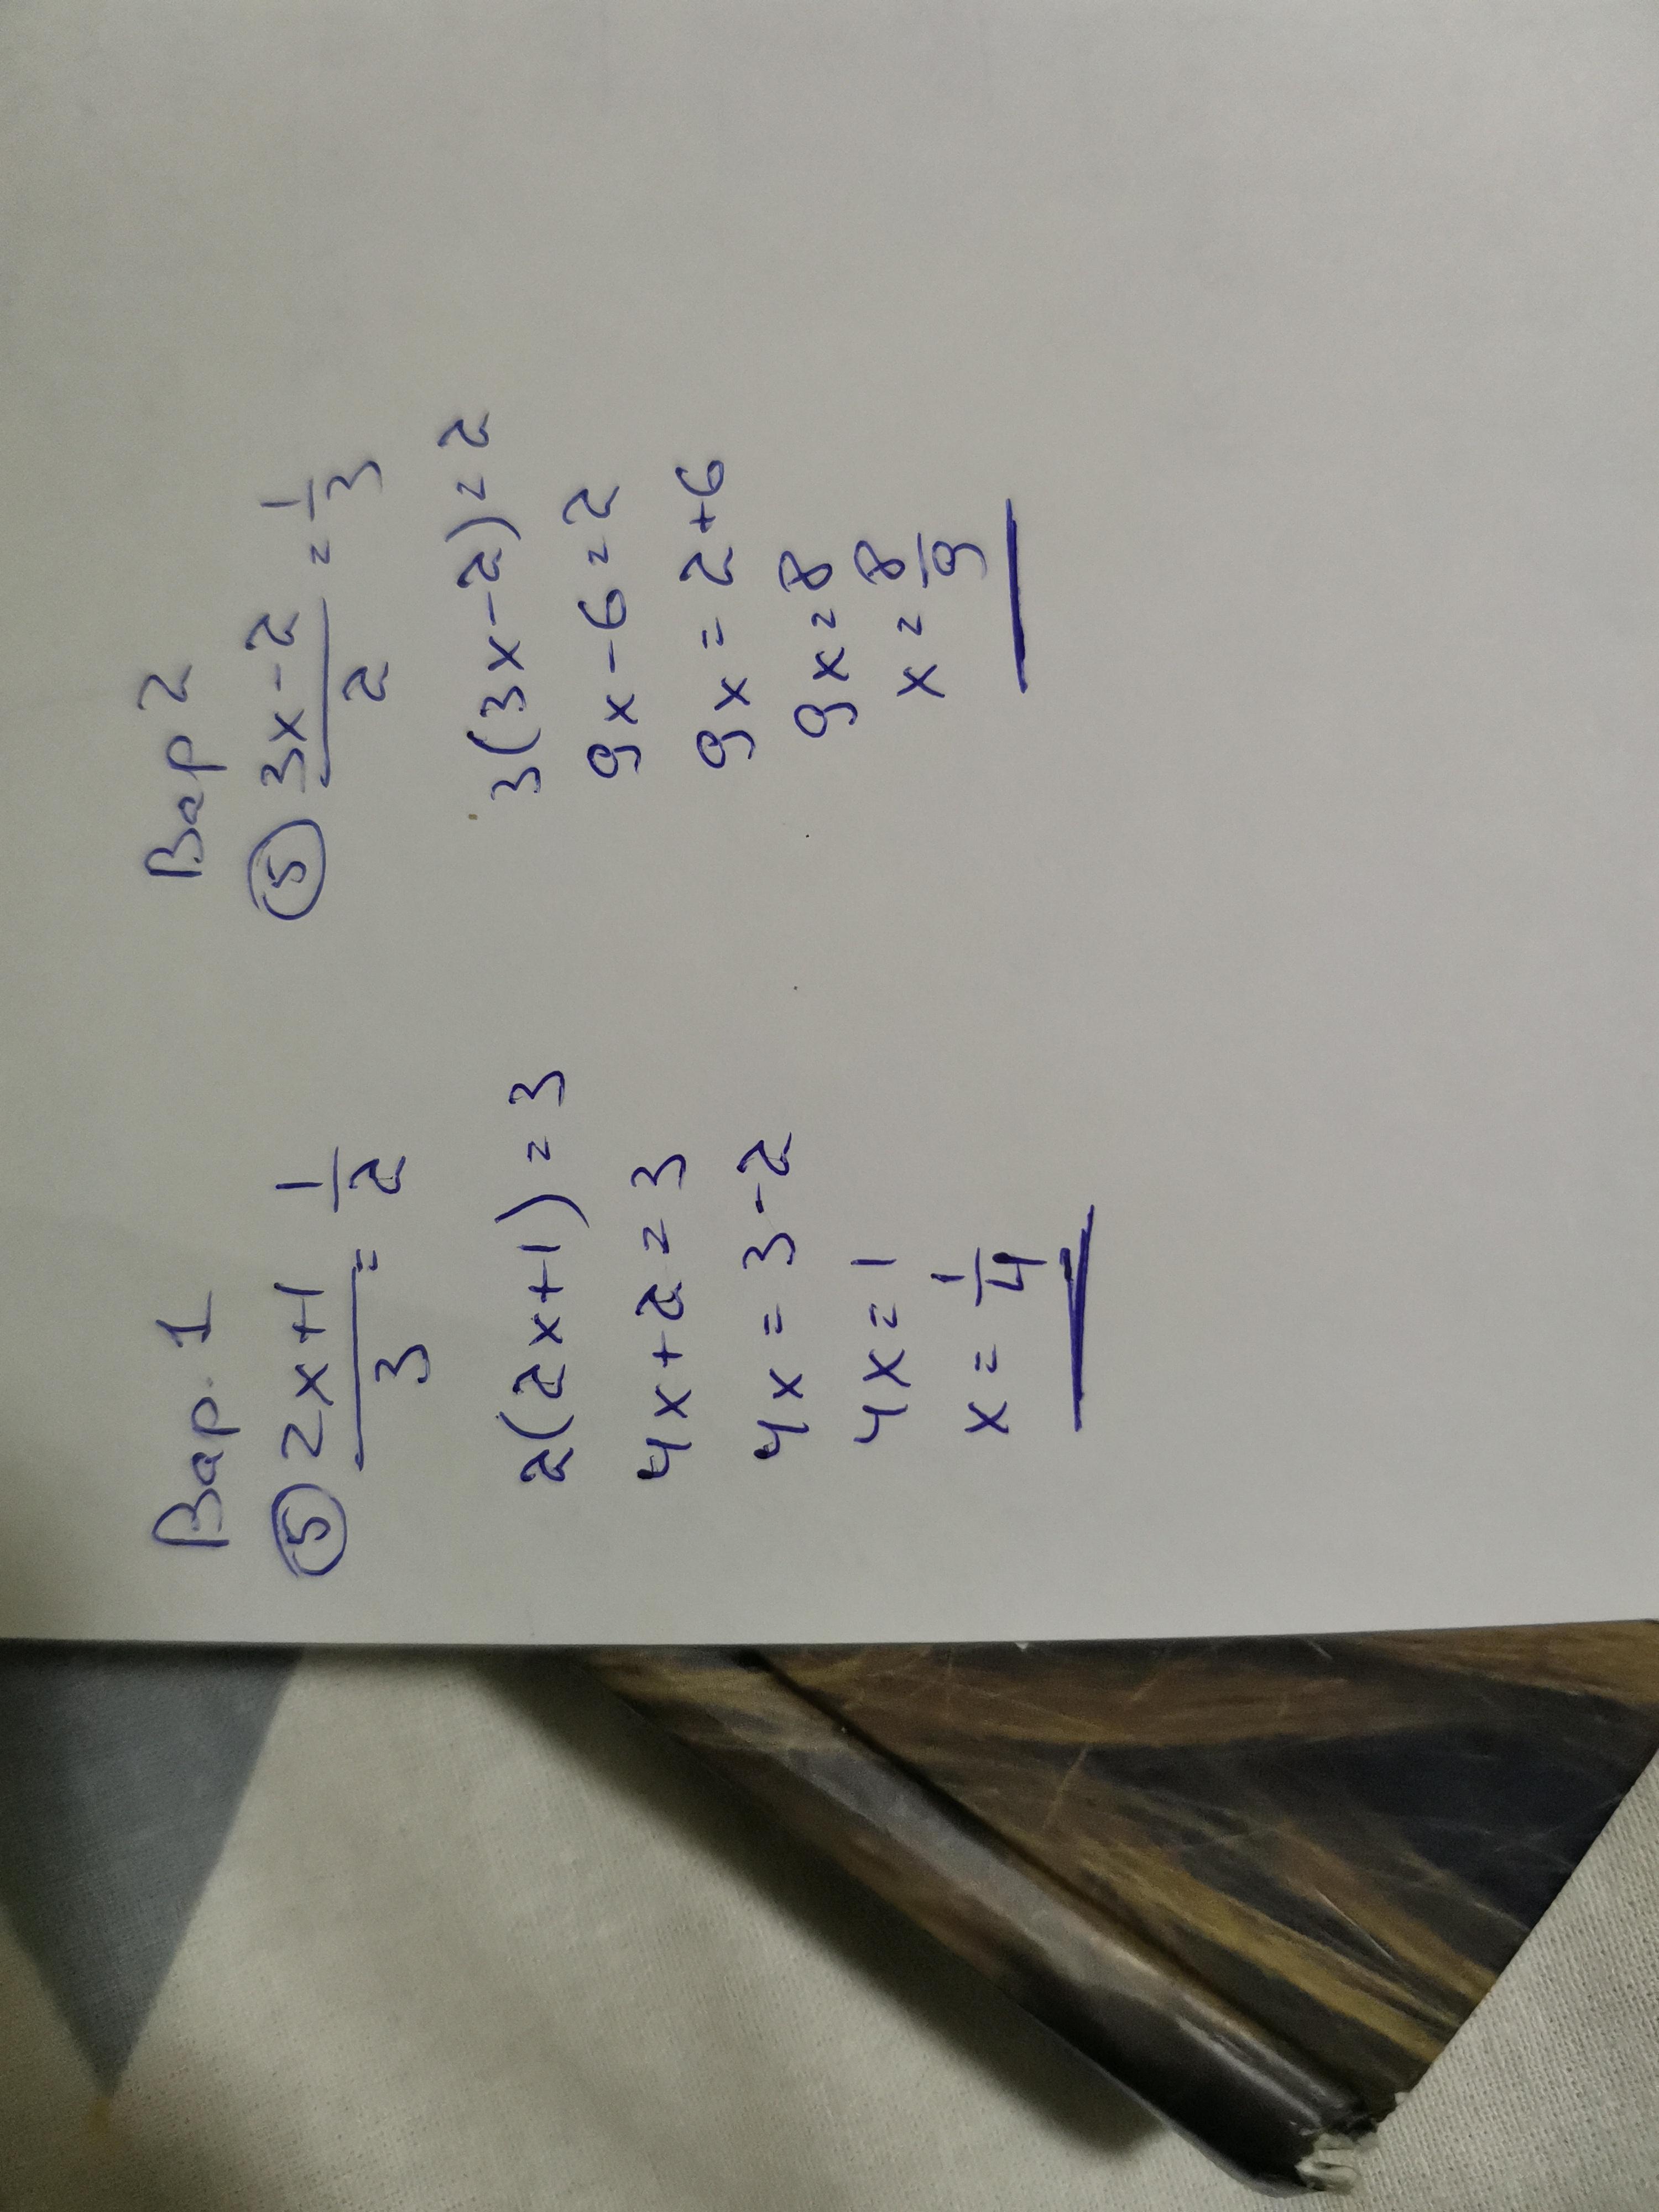 Вар. 1
⑤ 2x+1/3 = 1/2
2(2x+1)=3
4x+2=3
4x=3-2
4x=1
x=1/4
Вар 2
⑤ 3x-2/2 = 1/3
3(3x-2)=2
9x-6=2
9x=2+6
9x=8
x=8/9